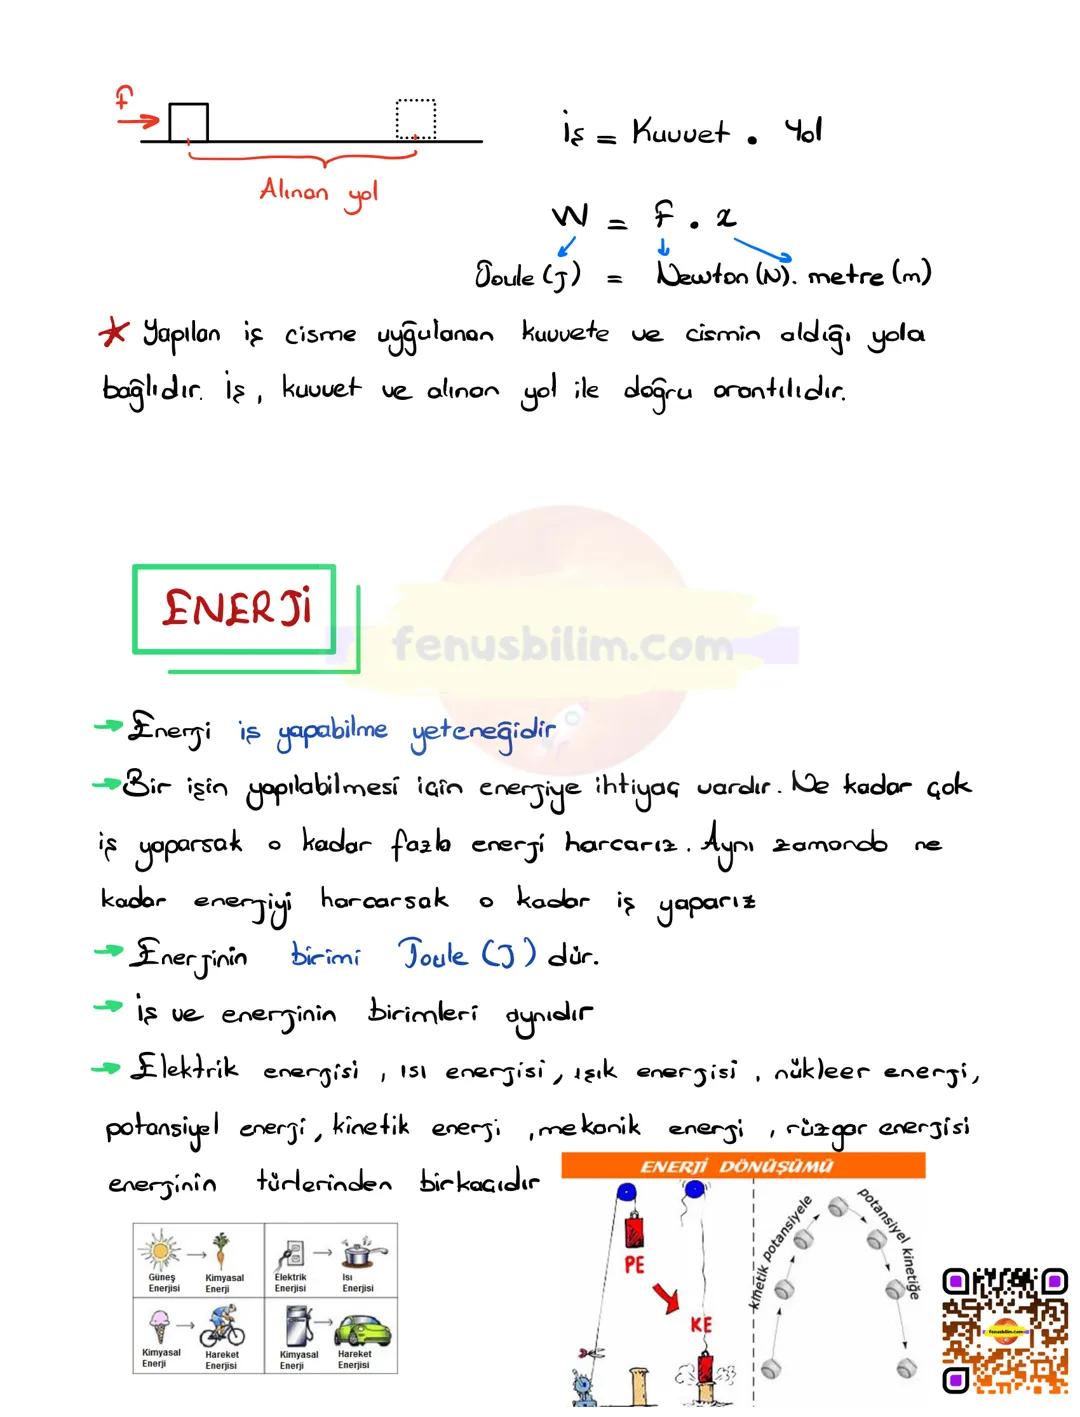 F
İş = Kuvvet . Yol
Alınan yol
W = F . x
Joule (J) = Newton (N). metre (m)
* Yapılan iş cisme uyğulanan kuvvete ve cismin aldığı yola
bağlıdır. İş, kuvvet ve alınan yol ile doğru orantılıdır.
ENERJİ
fenusbilim.com
→ Enerji iş yapabilme yeteneğidir
→ Bir işin yapılabilmesi için enerjiye ihtiyaç vardır. Ne kadar çok
iş yaparsak o kadar fazla enerji harcarız. Aynı zamanda ne
kadar enerjiyi harcarsak o kadar iş yaparız
→ Enerjinin birimi Joule (J) dür.
→ İş ve enerjinin birimleri aynıdır
→ Elektrik enerjisi, ısı enerjisi, ışık enerjisi, nükleer enerji,
potansiyel enerji, kinetik enerji, mekanik enerji, rüzgar enerjisi
enerjinin türlerinden birkaçıdır
Güneş Enerjisi
Kimyasal Enerji
Elektrik Enerjisi
Isı Enerjisi
Kimyasal Enerji
Hareket Enerjisi
Kimyasal Enerji
Hareket Enerjisi
ENERJİ DÖNÜŞÜMÜ
PE
KE
kinetik potansiyele
potansiyel kinetiğe
fenusbilim.com